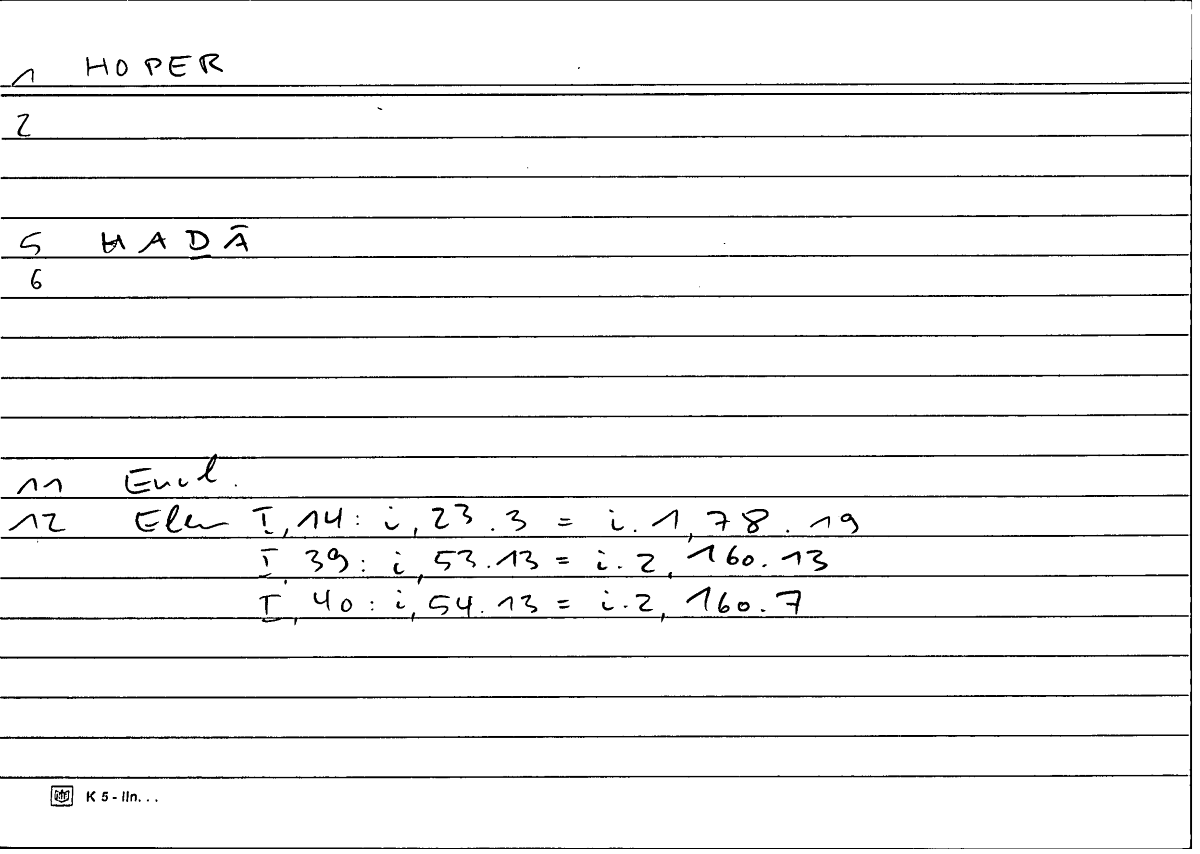 1 HOPER
2
5 HAḎĀ
6
11 Eucl.
12 Elem I, 14: i, 23.3 = i.1, 78.19
I, 39: i, 53.13 = i.2, 160.13
I, 40: i, 54.13 = i.2, 160.7
K 5 - IIn...